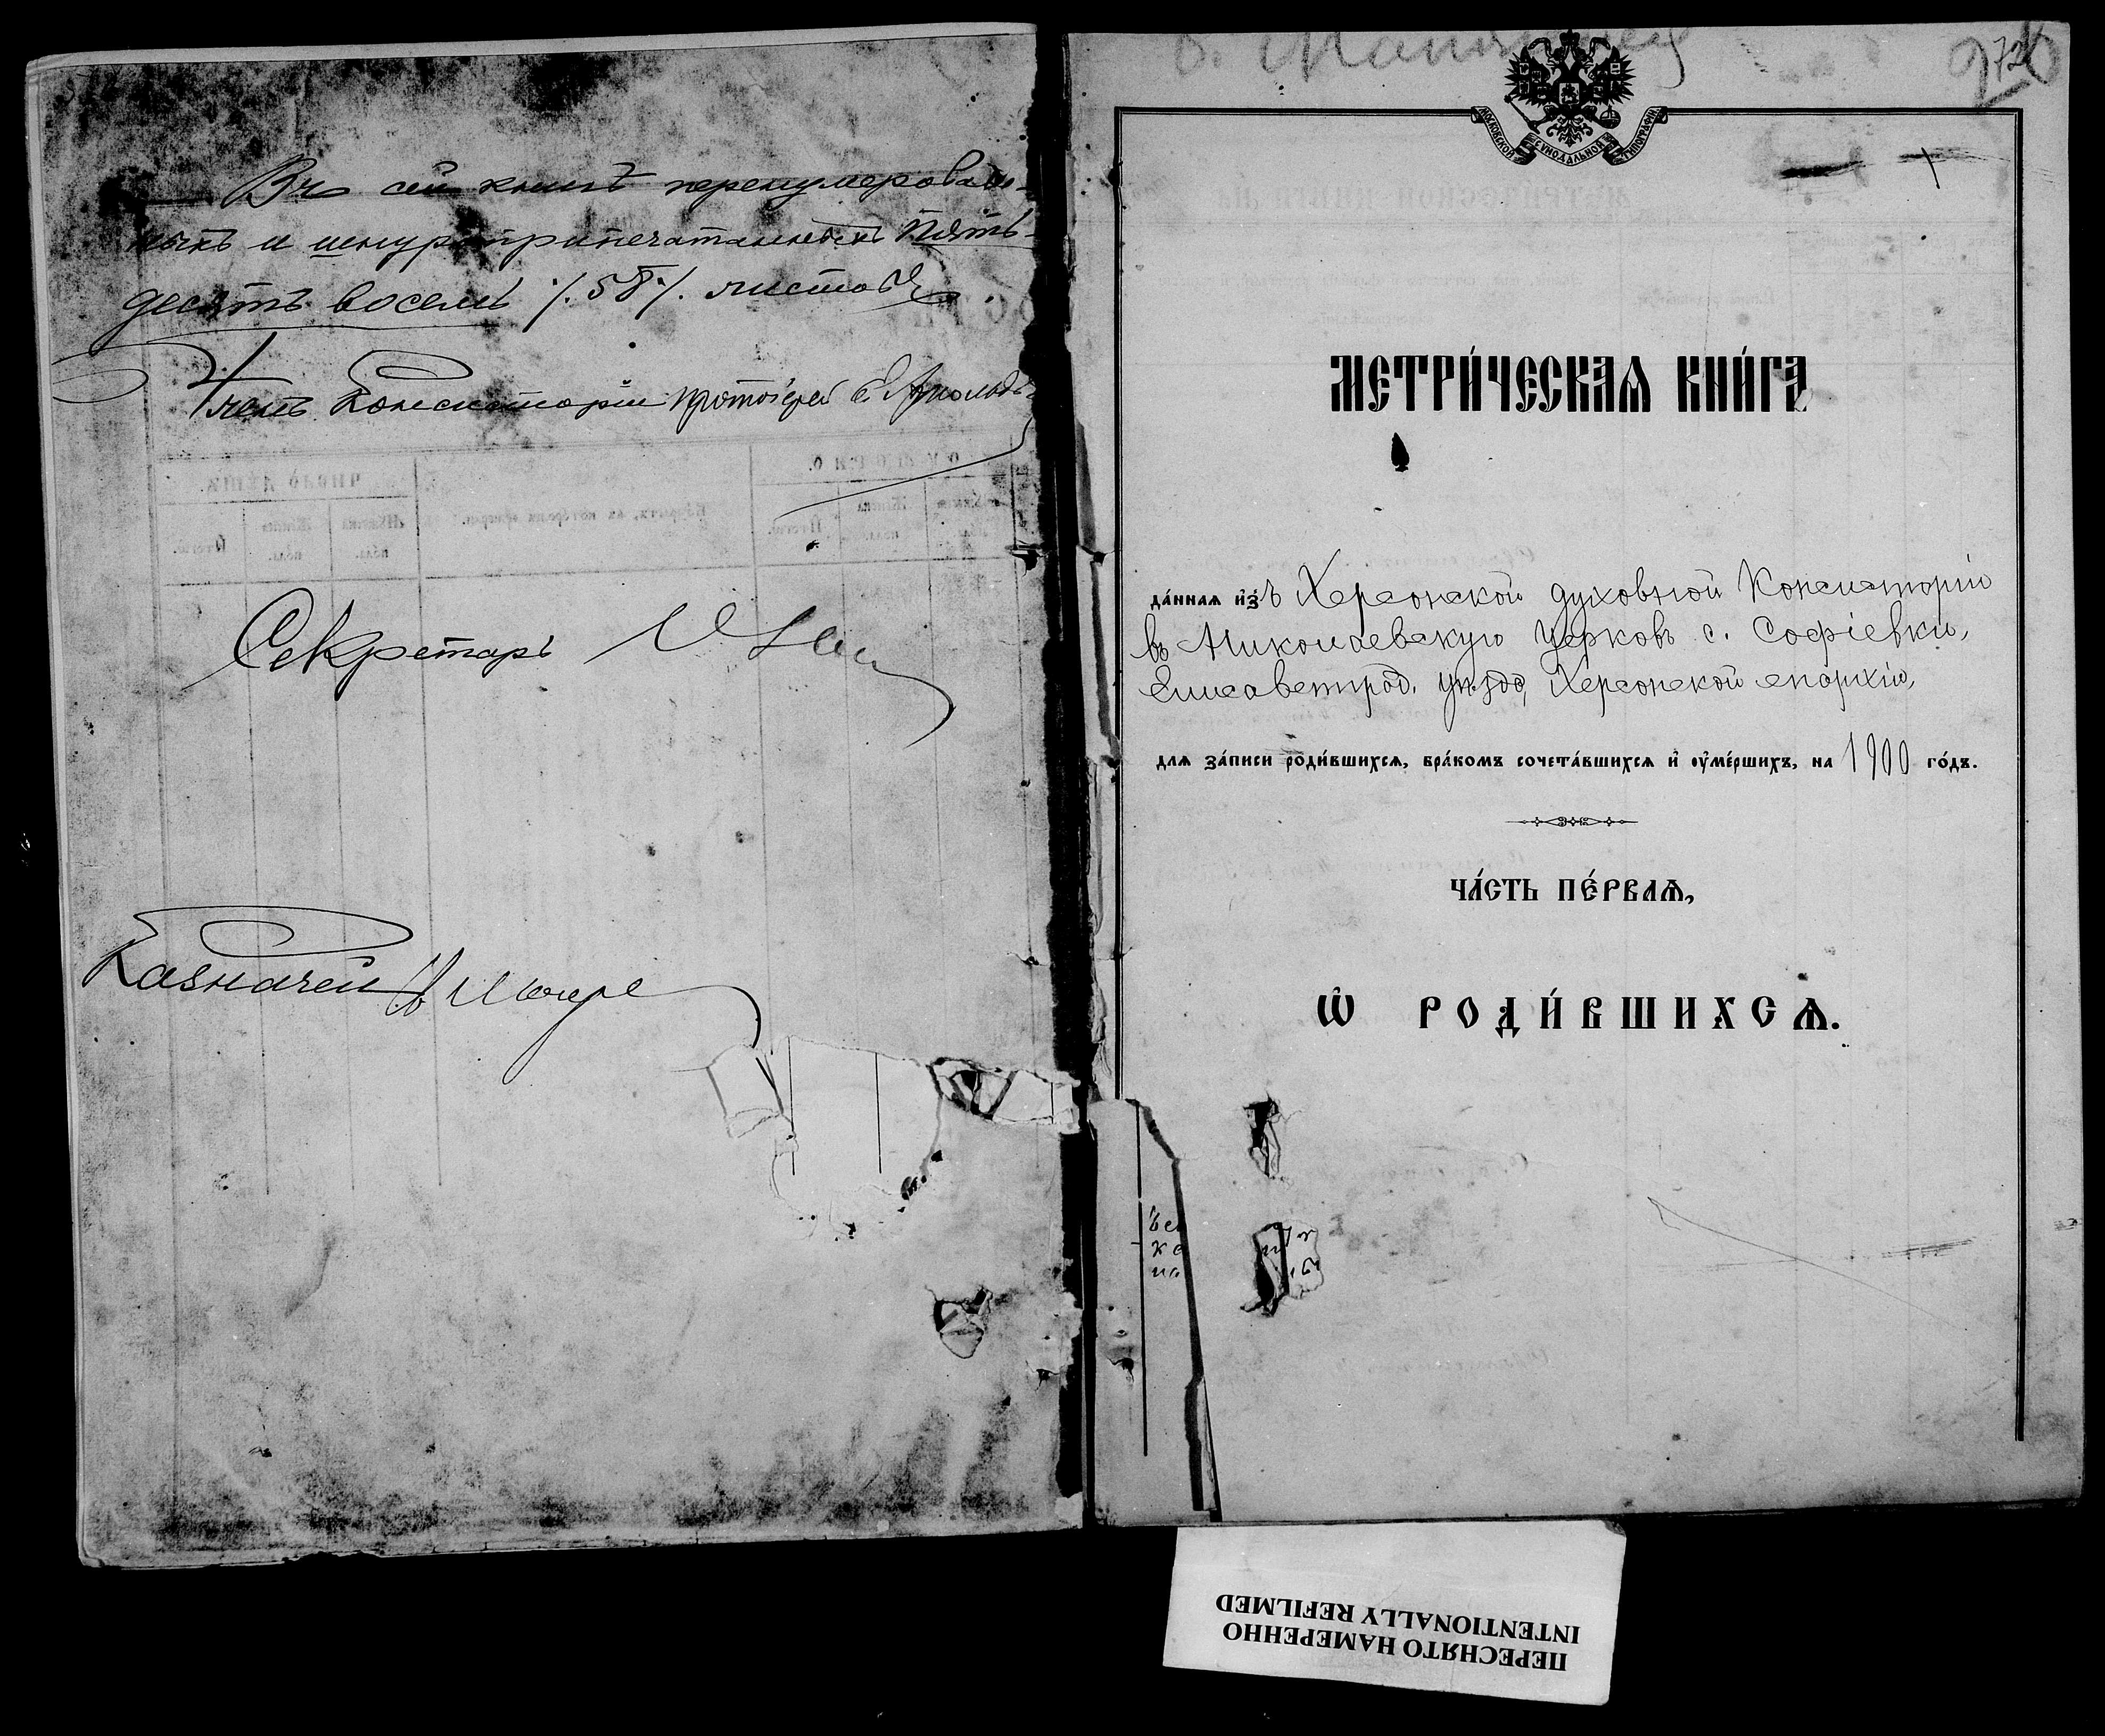 Въ сей книгѣ перенумерован-
ныхъ и шнуроприпечатанныхъ пять-
десятъ восемь /.58./ листовъ.
Членъ Консисторіи протоіерей
Секретарь
Казначей
72
МОСКОВСКОЙ СѴНОДАЛЬНОЙ ТИПОГРАФІИ
МЕТРИ́ЧЕСКАѦ КНИ́ГА
да́ннаѧ и҆з̾ъ Херсонской духовной Консисторіи
въ Николаевскую церковь с. Софіевки,
Елисаветград. уѣзда, Херсонской епархіи,
длѧ за́писи роди́вшихсѧ, бра́комъ сочета́вшихсѧ и҆ оу҆ме́ршихъ, на 1900 го́дъ.
ЧА́СТЬ ПЕ́РВАѦ,
Ѽ РОДИ́ВШИХСѦ.
ПЕРЕСНЯТО НАМЕРЕННО
INTENTIONALLY REFILMED